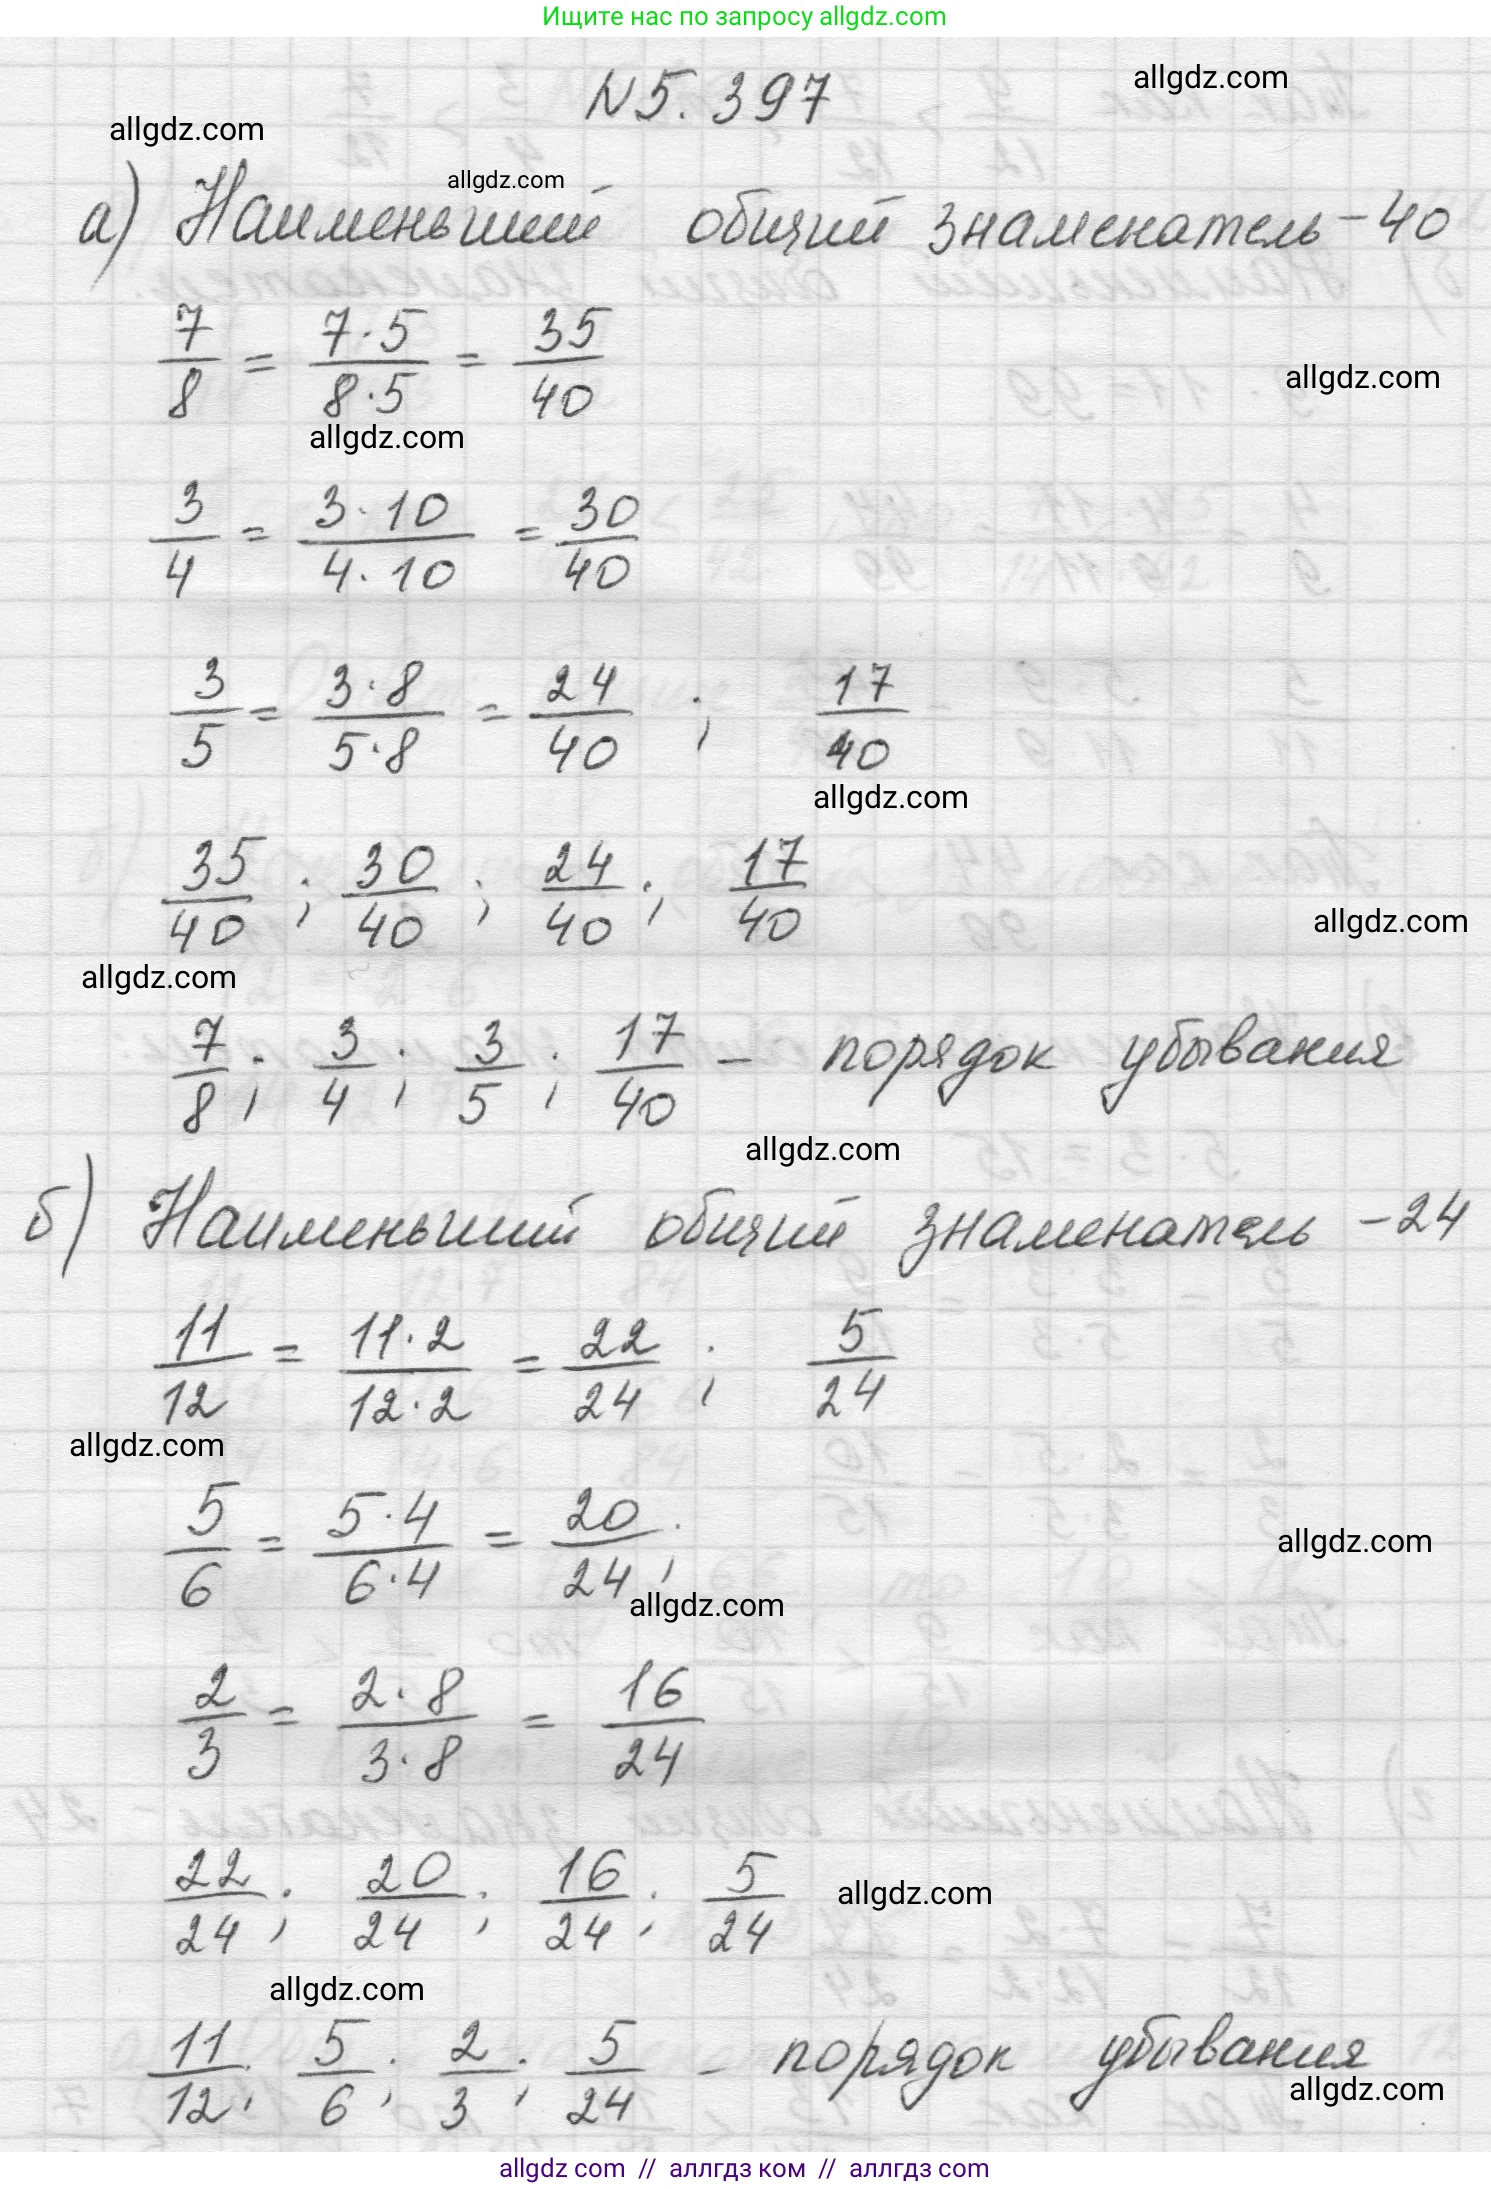 Ищите нас по запросу allgdz.com
N5.397
allgdz.com
allgdz.com
allgdz.com
а) Наименьший общий знаменатель - 40
7/8 = 7·5/8·5 = 35/40
allgdz.com
allgdz.com
3/4 = 3·10/4·10 = 30/40
3/5 = 3·8/5·8 = 24/40 ; 17/40
allgdz.com
35/40 ; 30/40 ; 24/40 ; 17/40
allgdz.com
allgdz.com
7/8 ; 3/4 ; 3/5 ; 17/40 - порядок убывания
allgdz.com
б) Наименьший общий знаменатель - 24
11/12 = 11·2/12·2 = 22/24 ; 5/24
allgdz.com
5/6 = 5·4/6·4 = 20/24 ;
allgdz.com
allgdz.com
2/3 = 2·8/3·8 = 16/24
22/24 ; 20/24 ; 16/24 ; 5/24
allgdz.com
allgdz.com
11/12 ; 5/6 ; 2/3 ; 5/24 - порядок убывания
allgdz.com
allgdz.com // аллгдз ком // аллгдз com